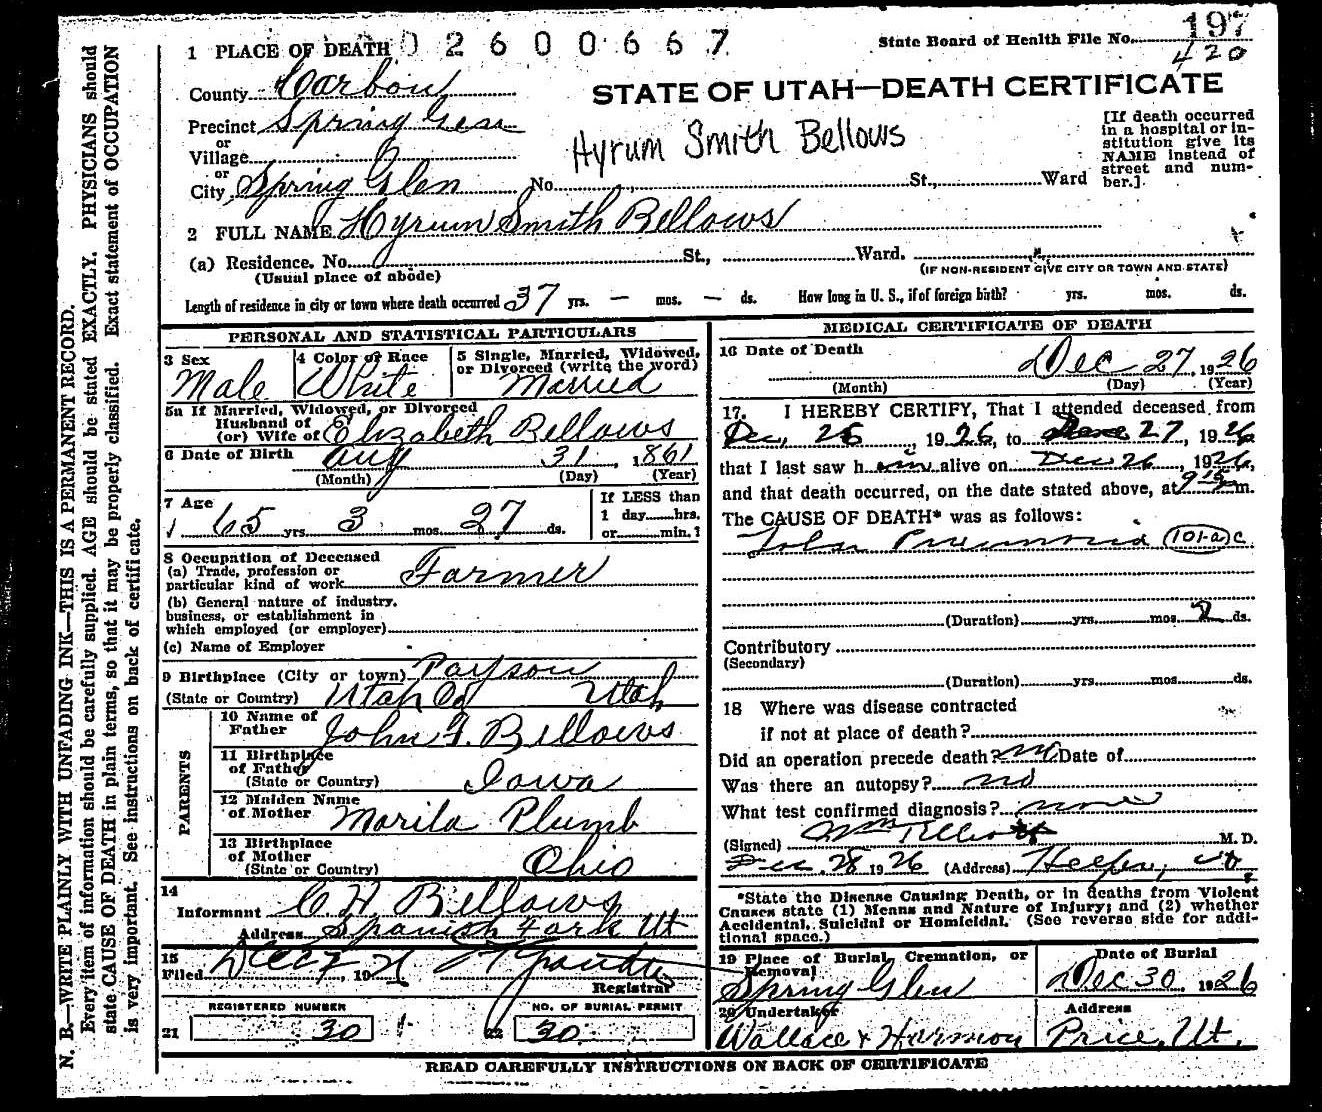 1 PLACE OF DEATH 0 2 6 0 0 6 6 7
State Board of Health File No. 197
420
County Carbon
STATE OF UTAH—DEATH CERTIFICATE
Precinct Spring Glen
or
Village
or
City Spring Glen No. St., Ward
Hyrum Smith Bellows
[If death occurred
in a hospital or in-
stitution give its
NAME instead of
street and num-
ber.]
2 FULL NAME Hyrum Smith Bellows
(a) Residence. No. St., Ward.
(Usual place of abode)
(IF NON-RESIDENT GIVE CITY OR TOWN AND STATE)
Length of residence in city or town where death occurred 37 yrs. — mos. — ds. How long in U. S., if of foreign birth? yrs. mos. ds.
PERSONAL AND STATISTICAL PARTICULARS
3 Sex
Male
4 Color or Race
White
5 Single, Married, Widowed,
or Divorced (write the word)
Married
5a If Married, Widowed, or Divorced
Husband of
(or) Wife of Elizabeth Bellows
6 Date of Birth Aug 31, 1861
(Month) (Day) (Year)
7 Age
65 yrs. 3 mos. 27 ds.
If LESS than
1 day hrs.
or min.?
8 Occupation of Deceased
(a) Trade, profession or
particular kind of work Farmer
(b) General nature of industry,
business, or establishment in
which employed (or employer)
(c) Name of Employer
9 Birthplace (City or town) Payson
(State or Country) Utah Co Utah
PARENTS
10 Name of
Father John F. Bellows
11 Birthplace
of Father
(State or Country) Iowa
12 Maiden Name
of Mother Marila Plumb
13 Birthplace
of Mother
(State or Country) Ohio
14
Informant C H Bellows
Address Spanish Fork Ut
15
Filed 19
Registrar
REGISTERED NUMBER
21 30
NO. OF BURIAL PERMIT
22 30
MEDICAL CERTIFICATE OF DEATH
16 Date of Death Dec 27, 1926
(Month) (Day) (Year)
17. I HEREBY CERTIFY, That I attended deceased from
Dec, 26, 1926, to 27, 1926
that I last saw him alive on Dec 26, 1926,
and that death occurred, on the date stated above, at 9 15 m.
The CAUSE OF DEATH* was as follows:
Lobar Pneumonia 101-a c
(Duration) yrs. mos. 2 ds.
Contributory
(Secondary)
(Duration) yrs. mos. ds.
18 Where was disease contracted
if not at place of death?
Did an operation precede death? no Date of
Was there an autopsy? no
What test confirmed diagnosis? none
(Signed) M. D.
Dec. 28 1926 (Address) Helper, Ut.
*State the Disease Causing Death, or in deaths from Violent
Causes state (1) Means and Nature of Injury; and (2) whether
Accidental, Suicidal or Homicidal. (See reverse side for addi-
tional space.)
19 Place of Burial, Cremation, or
Removal
Spring Glen
Date of Burial
Dec 30 1926
20 Undertaker
Wallace & Harmon
Address
Price, Ut.
READ CAREFULLY INSTRUCTIONS ON BACK OF CERTIFICATE
N. B.—WRITE PLAINLY WITH UNFADING INK—THIS IS A PERMANENT RECORD.
Every item of information should be carefully supplied. AGE should be stated EXACTLY. PHYSICIANS should
state CAUSE OF DEATH in plain terms, so that it may be properly classified. Exact statement of OCCUPATION
is very important. See instructions on back of certificate.